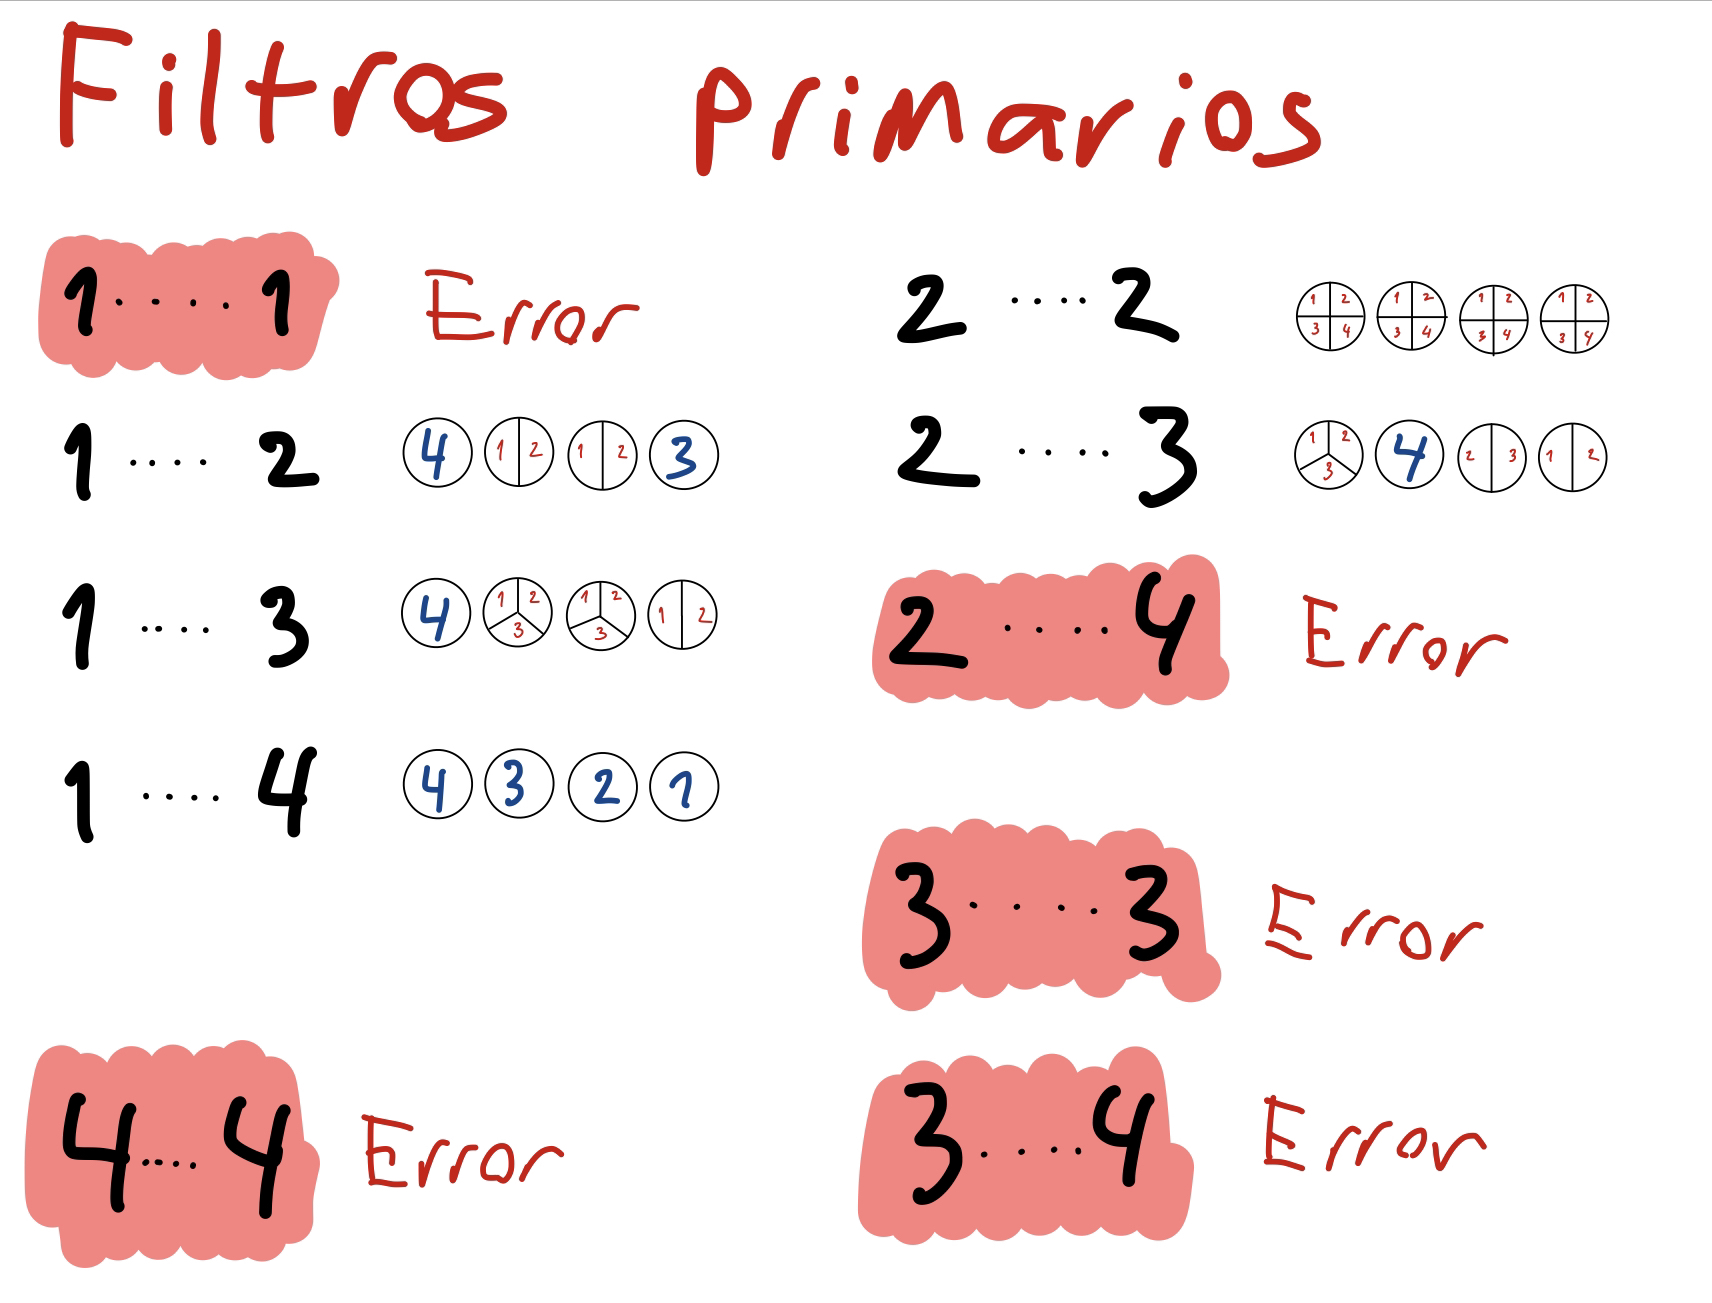 Filtros primarios
1 .... 1 Error
1 .... 2 4 1 2 1 2 3
1 .... 3 4 1 2 3 1 2 3 1 2
1 .... 4 4 3 2 1
4 .... 4 Error
2 .... 2 1 2 3 4 1 2 3 4 1 2 3 4 1 2 3 4
2 .... 3 1 2 3 4 2 3 1 2
2 .... 4 Error
3 .... 3 Error
3 .... 4 Error